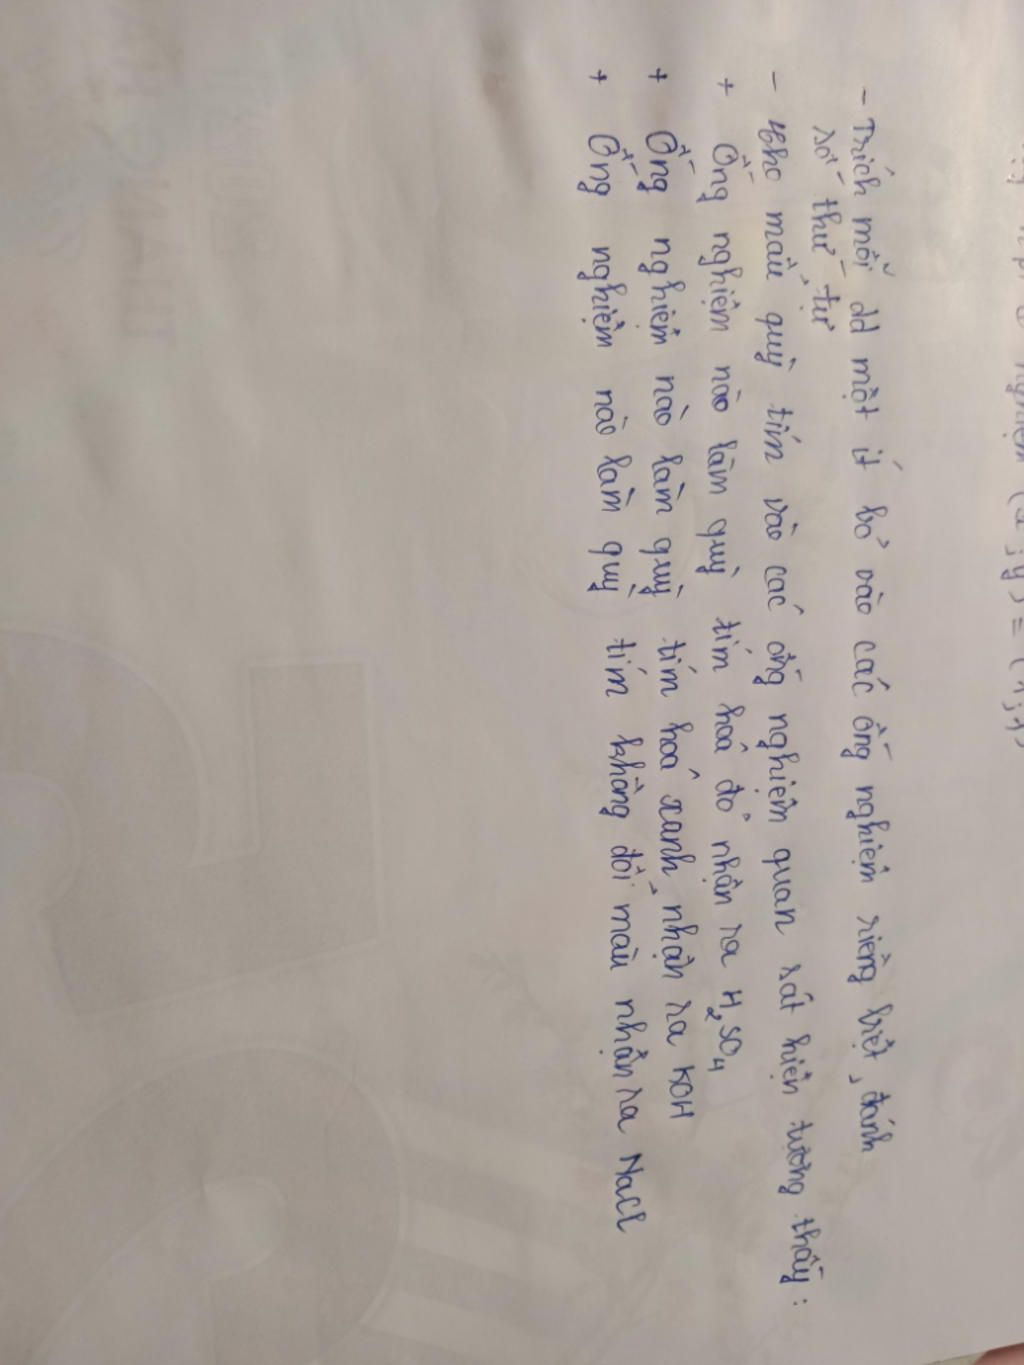 nghiệm (x;y) = (1;1)
- Trích mỗi dd một ít bỏ vào các ống nghiệm riêng biệt, đánh
số thứ tự
- Cho mẩu quỳ tím vào các ống nghiệm quan sát hiện tượng thấy:
+ Ống nghiệm nào làm quỳ tím hoá đỏ nhận ra H₂SO₄
+ Ống nghiệm nào làm quỳ tím hoá xanh, nhận ra KOH
+ Ống nghiệm nào làm quỳ tím không đổi màu nhận ra NaCl